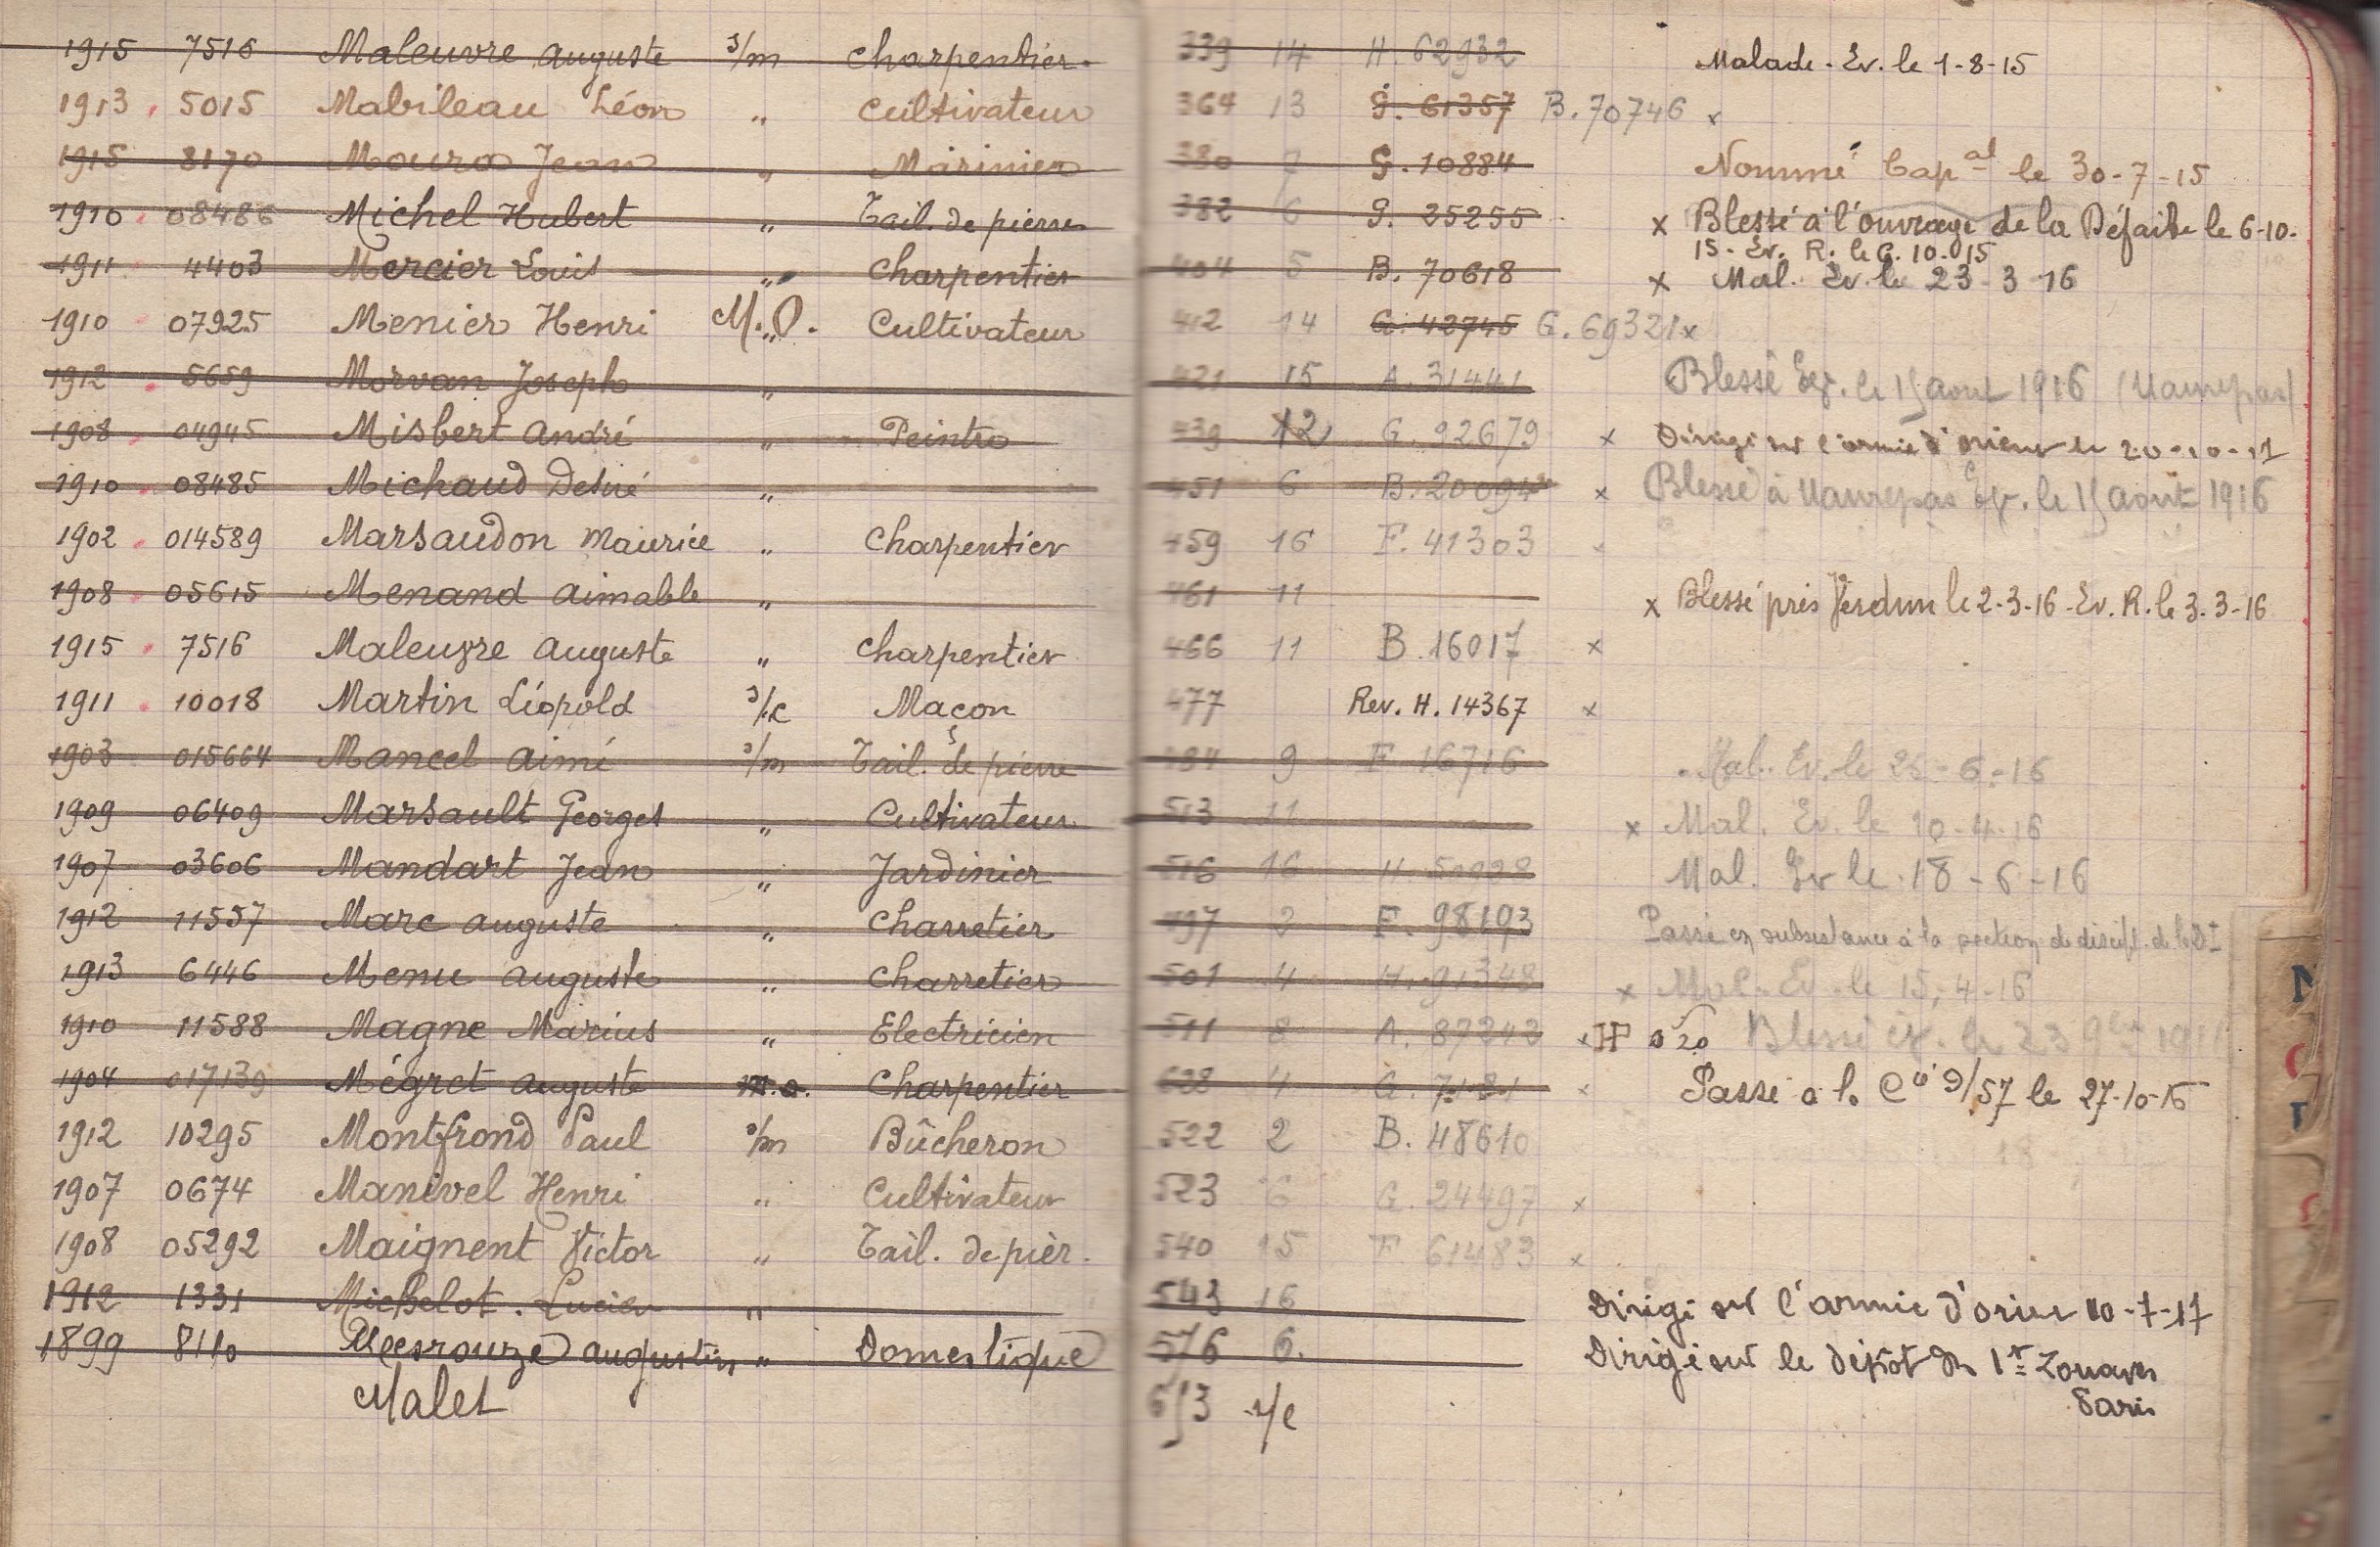 1915 7516 Maleuvre Auguste s/m Charpentier 339 14 H. 62932 Malade. Ev. le 1-8-15
1913 5015 Mabileau Léon " Cultivateur 364 13 G. 61357 B. 70746 x
1915 8170 Moura Jean " Marinier 380 7 G. 10884 Nommé Capal le 30-7-15
1910 08486 Michel Hubert " Tail. de pierre 382 6 G. 25255 x Blessé à l'ouvrage de la Défaite le 6-10.
15. Ev. R. le 6.10.15
1911 4403 Mercier Louis " Charpentier 404 5 B. 70618 x Mal. Ev. le 23-3-16
1910 07925 Menier Henri M.O. " Cultivateur 412 14 G. 42745 G. 69321 x
1912 5659 Morvan Joseph " 421 15 A. 31441 Blessé Ev. le 15 aout 1916 (Maurepas)
1908 04945 Misbert André " Peintre 439 12 G. 92679 x Dirigé sur l'armée d'orient le 20-10-17
1910 08485 Michaud Désiré " 451 6 B. 20094 x Blessé à Maurepas Ev. le 15 août 1916
1902 014589 Marsaudon Maurice " Charpentier 459 16 F. 41303 x
1908 05615 Menand Aimable " 461 11 x Blessé près Verdun le 2-3-16. Ev. R. le 3.3-16
1915 7516 Maleuvre Auguste " Charpentier 466 11 B. 16017 x
1911 10018 Martin Léopold s/c Maçon 477 Rev. H. 14367 x
1903 015664 Mancel Aimé s/m Tail. de pierre 484 9 F 16716 Mal. Ev. le 25-6-16
1909 06409 Marsault Georges " Cultivateur 513 11 x Mal. Ev. le 10-4-16
1907 03606 Mandart Jean " Jardinier 516 16 H. Mal. Ev le 18-6-16
1912 11557 Marc Auguste " Charretier 497 2 F. 98193 Passé en subsistance à la section de discipl. de la Dt
1913 6446 Menu Auguste " Charretier 501 4 H. 91348 x Mal. Ev. le 15-4-16
1910 11588 Magne Marius " Electricien 511 8 A. 87242 x Blessé Ev. le 23
1904 017139 Mégret Auguste m.o. Charpentier 4 G. 7181 x Passé à la Cie 9/57 le 27-10-16
1912 10295 Montfrond Paul s/m Bûcheron 522 2 B. 48610
1907 0674 Manivel Henri " Cultivateur 523 6 G. 24497 x
1908 05292 Maignent Victor " Tail. de pièr. 540 15 F 61483 x
1912 1331 Michelot. Lucien " 543 16 Dirigé sur l'armée d'orient 10-7-17
1899 8110 Augustin " Domestique 576 6. Dirigé sur le dépot du 1er Zouaves
Paris
Malet 613 s/c
N